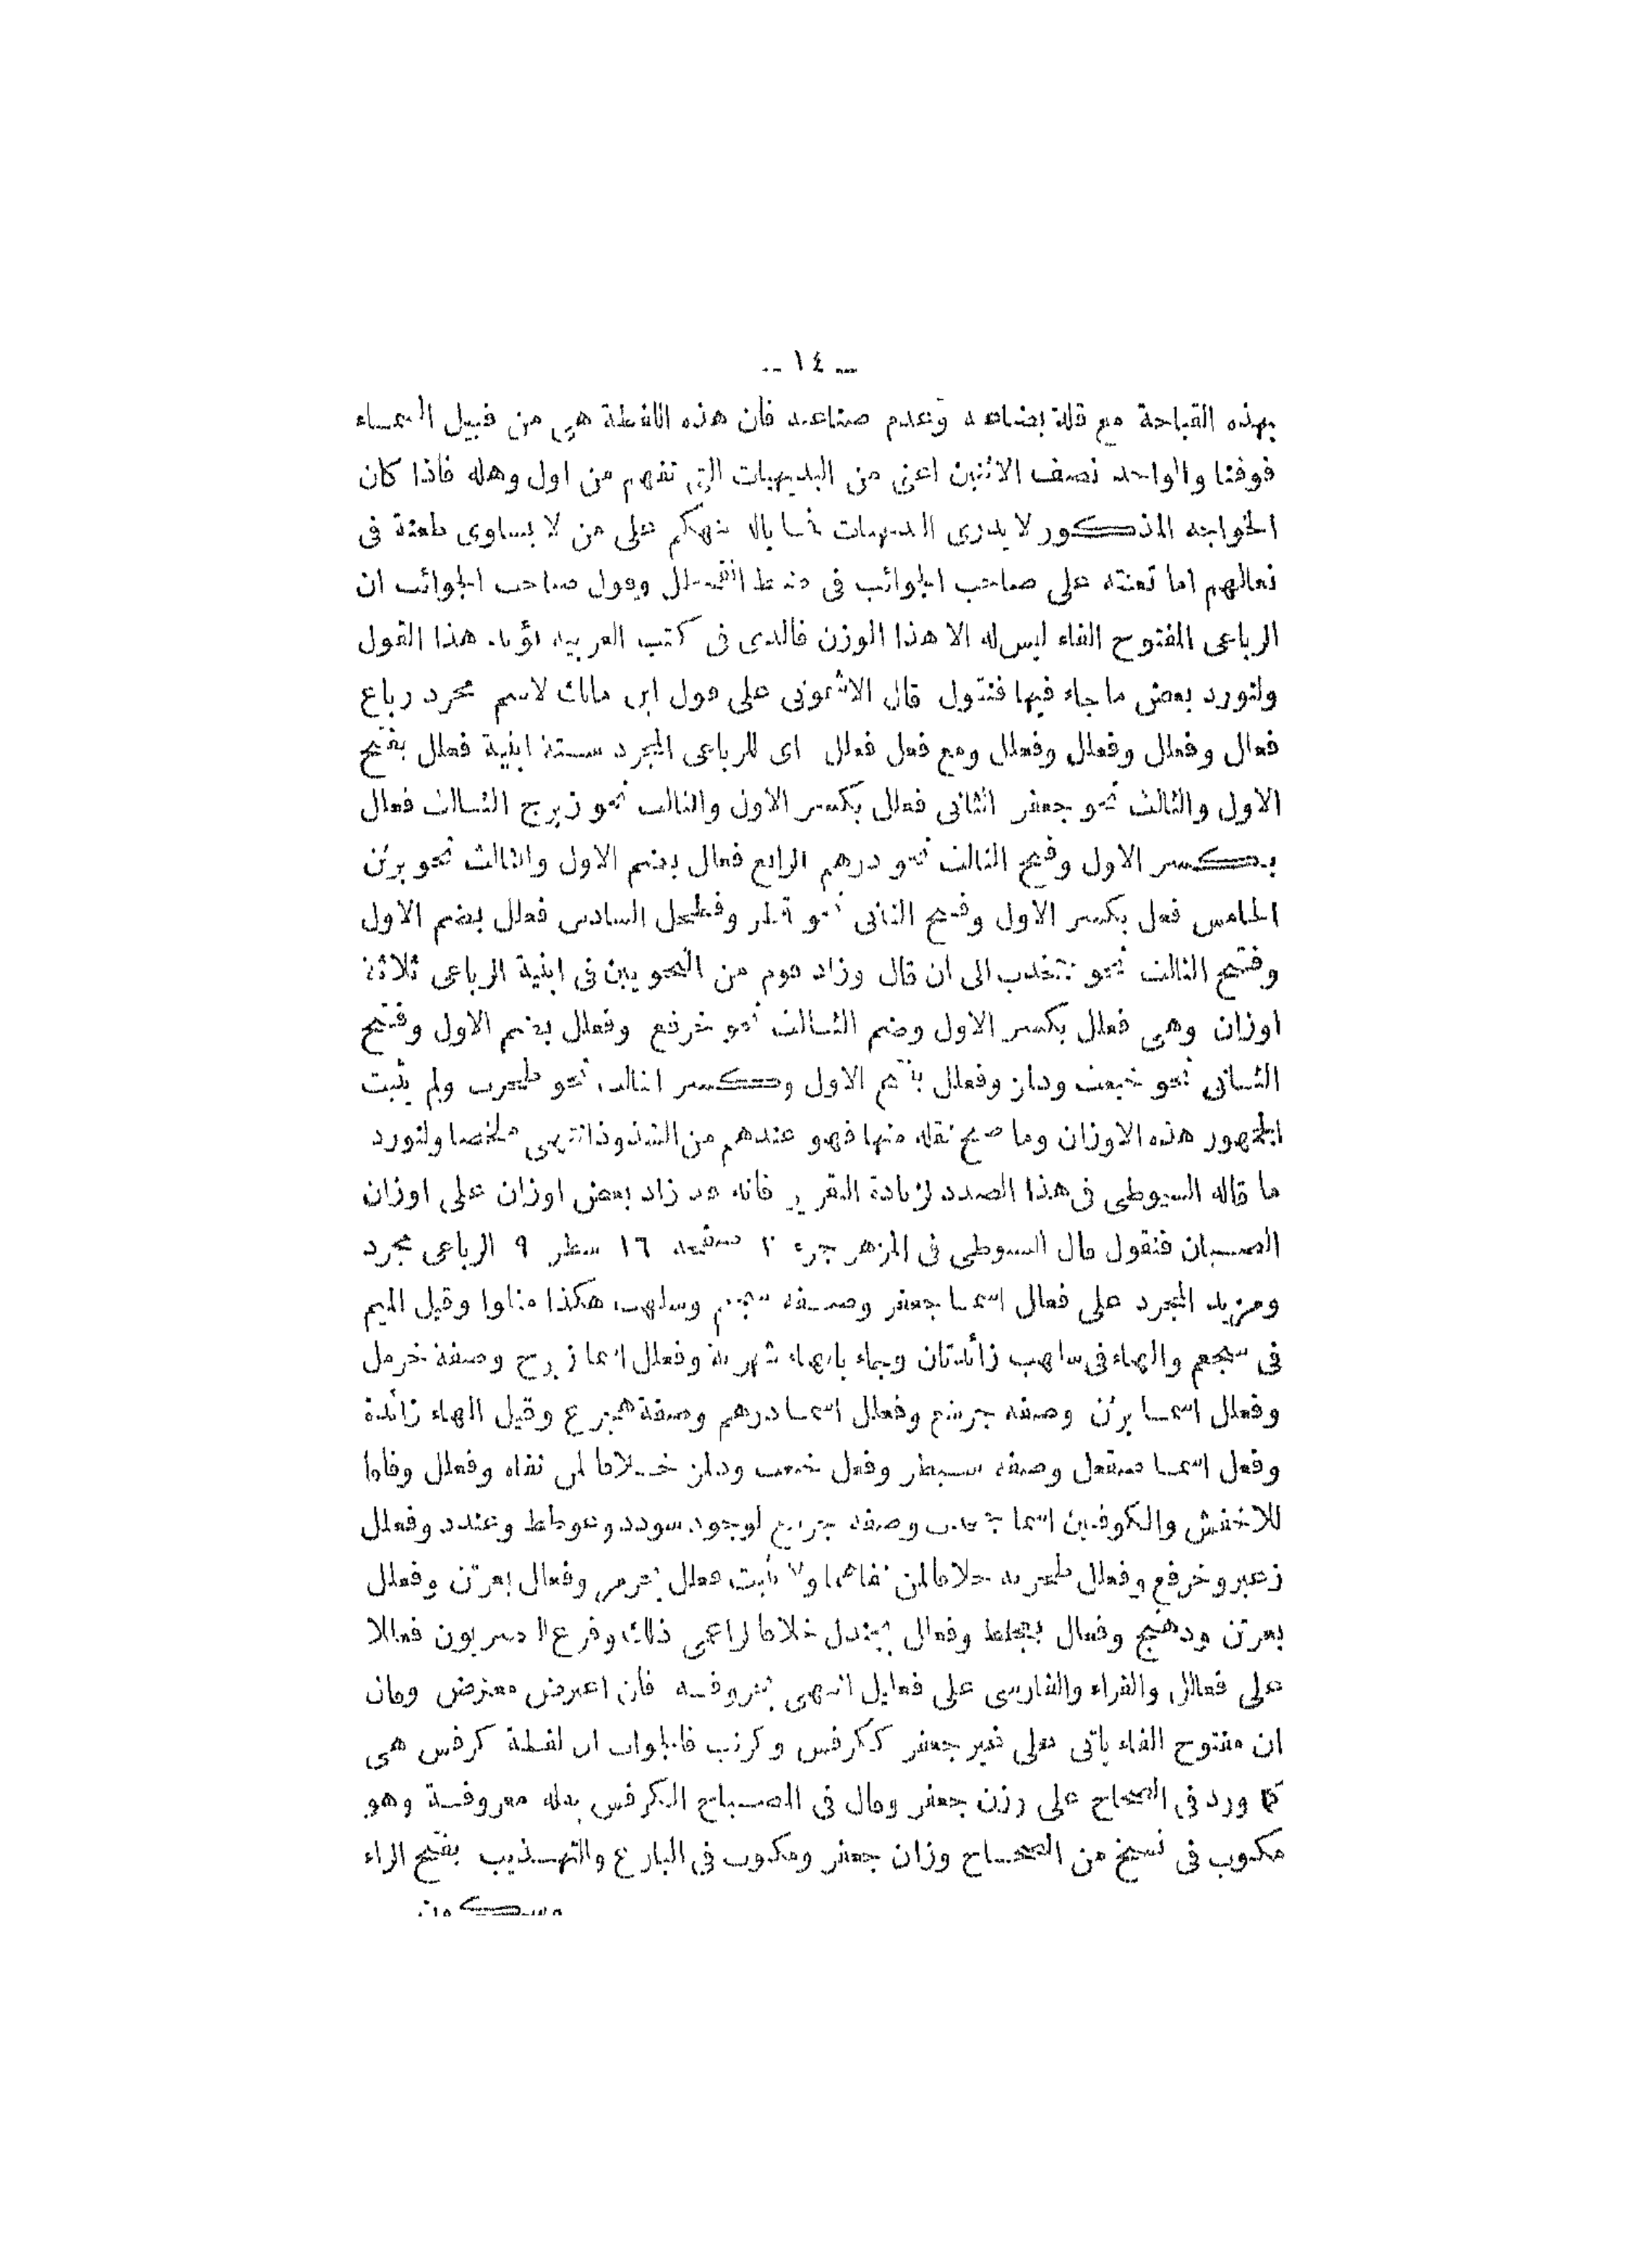 — ١٤ —
بهذه القباحة مع قلة بضاعته وعدم صناعته فان هذه اللفظة هى من قبيل السماء
فوقنا والواحد نصف الاثنين اعنى من البديهيات التى تفهم من اول وهله فاذا كان
الخواجه المذكور لا يدرى البديهيات فما باله يتهكم على من لا يساوى طعنة فى
نعالهم اما تعنته على صاحب الجوائب فى ضبط وقول صاحب الجوائب ان
الرباعى المفتوح الفاء ليس له الا هذا الوزن فالذى فى كتب العربيه يؤيد هذا القول
ولنورد بعض ما جاء فيها فنقول قال الاشمونى على قول ابن مالك لاسم مجرد رباع
فعلل وفعلل وفعلل وفعلل ومع فعل فعلل اى للرباعى المجرد ستة ابنية فعلل بفتح
الاول والثالث نحو جعفر الثانى فعلل بكسر الاول والثالث نحو زبرج الثالث فعلل
بكسر الاول وفتح الثالث نحو درهم الرابع فعلل بضم الاول والثالث نحو برثن
الخامس فعل بكسر الاول وفتح الثانى نحو قطر وفطحل السادس فعلل بضم الاول
وفتح الثالث نحو جخدب الى ان قال وزاد قوم من النحويين فى ابنية الرباعى ثلاثة
اوزان وهى فعلل بكسر الاول وضم الثالث نحو خرفع وفعلل بضم الاول وفتح
الثانى نحو خبعث ودلمز وفعلل بفتح الاول وكسر الثالث نحو طحرب ولم يثبت
الجمهور هذه الاوزان وما صح نقله منها فهو عندهم من الشذوذ انتهى ملخصا ولنورد
ما قاله السيوطى فى هذا الصدد لزيادة التقرير فانه قد زاد بعض اوزان على اوزان
الصبان فنقول قال السيوطى فى المزهر جزء ٢ صفحه ١٦ سطر ٩ الرباعى مجرد
ومزيد المجرد على فعلل اسما جعفر وصفه سجعم وسلهب هكذا مثلوا وقيل الميم
فى سجعم والهاء فى سلهب زائدتان وجاء بالهاء شهربة وفعلل اسما زبرج وصفة خرمل
وفعلل اسما برثن وصفه جرشع وفعلل اسما درهم وصفة هجرع وقيل الهاء زائدة
وفعل اسما صقعل وصفه سبطر وفعل خبعث ودلمز خلافا لمن نفاه وفعلل وفاقا
للاخفش والكوفيين اسما جخدب وصفه جرشع لوجود سودد وعوطط وعندد وفعلل
زئبر وخرفع وفعلل طحربه خلافا لمن نفاهما ولا يثبت فعلل وفعلل بعرتن وفعلل
بعرتن ودهنج وفعلل وفعلل بجندل خلافا لزاعمى ذلك وفرع البصريون فعللا
على فعالل والفراء والفارسى على فعليل انتهى بحروفه فان اعترض معترض وقال
ان مفتوح الفاء ياتى على غير جعفر ككرفس وكرنب فالجواب ان لفظة كرفس هى
كما ورد فى الصحاح على وزن جعفر وقال فى المصباح الكرفس بقله معروفة وهو
مكتوب فى نسخ من الصحاح وزان جعفر ومكتوب فى البارع والتهذيب بفتح الراء
وسكون